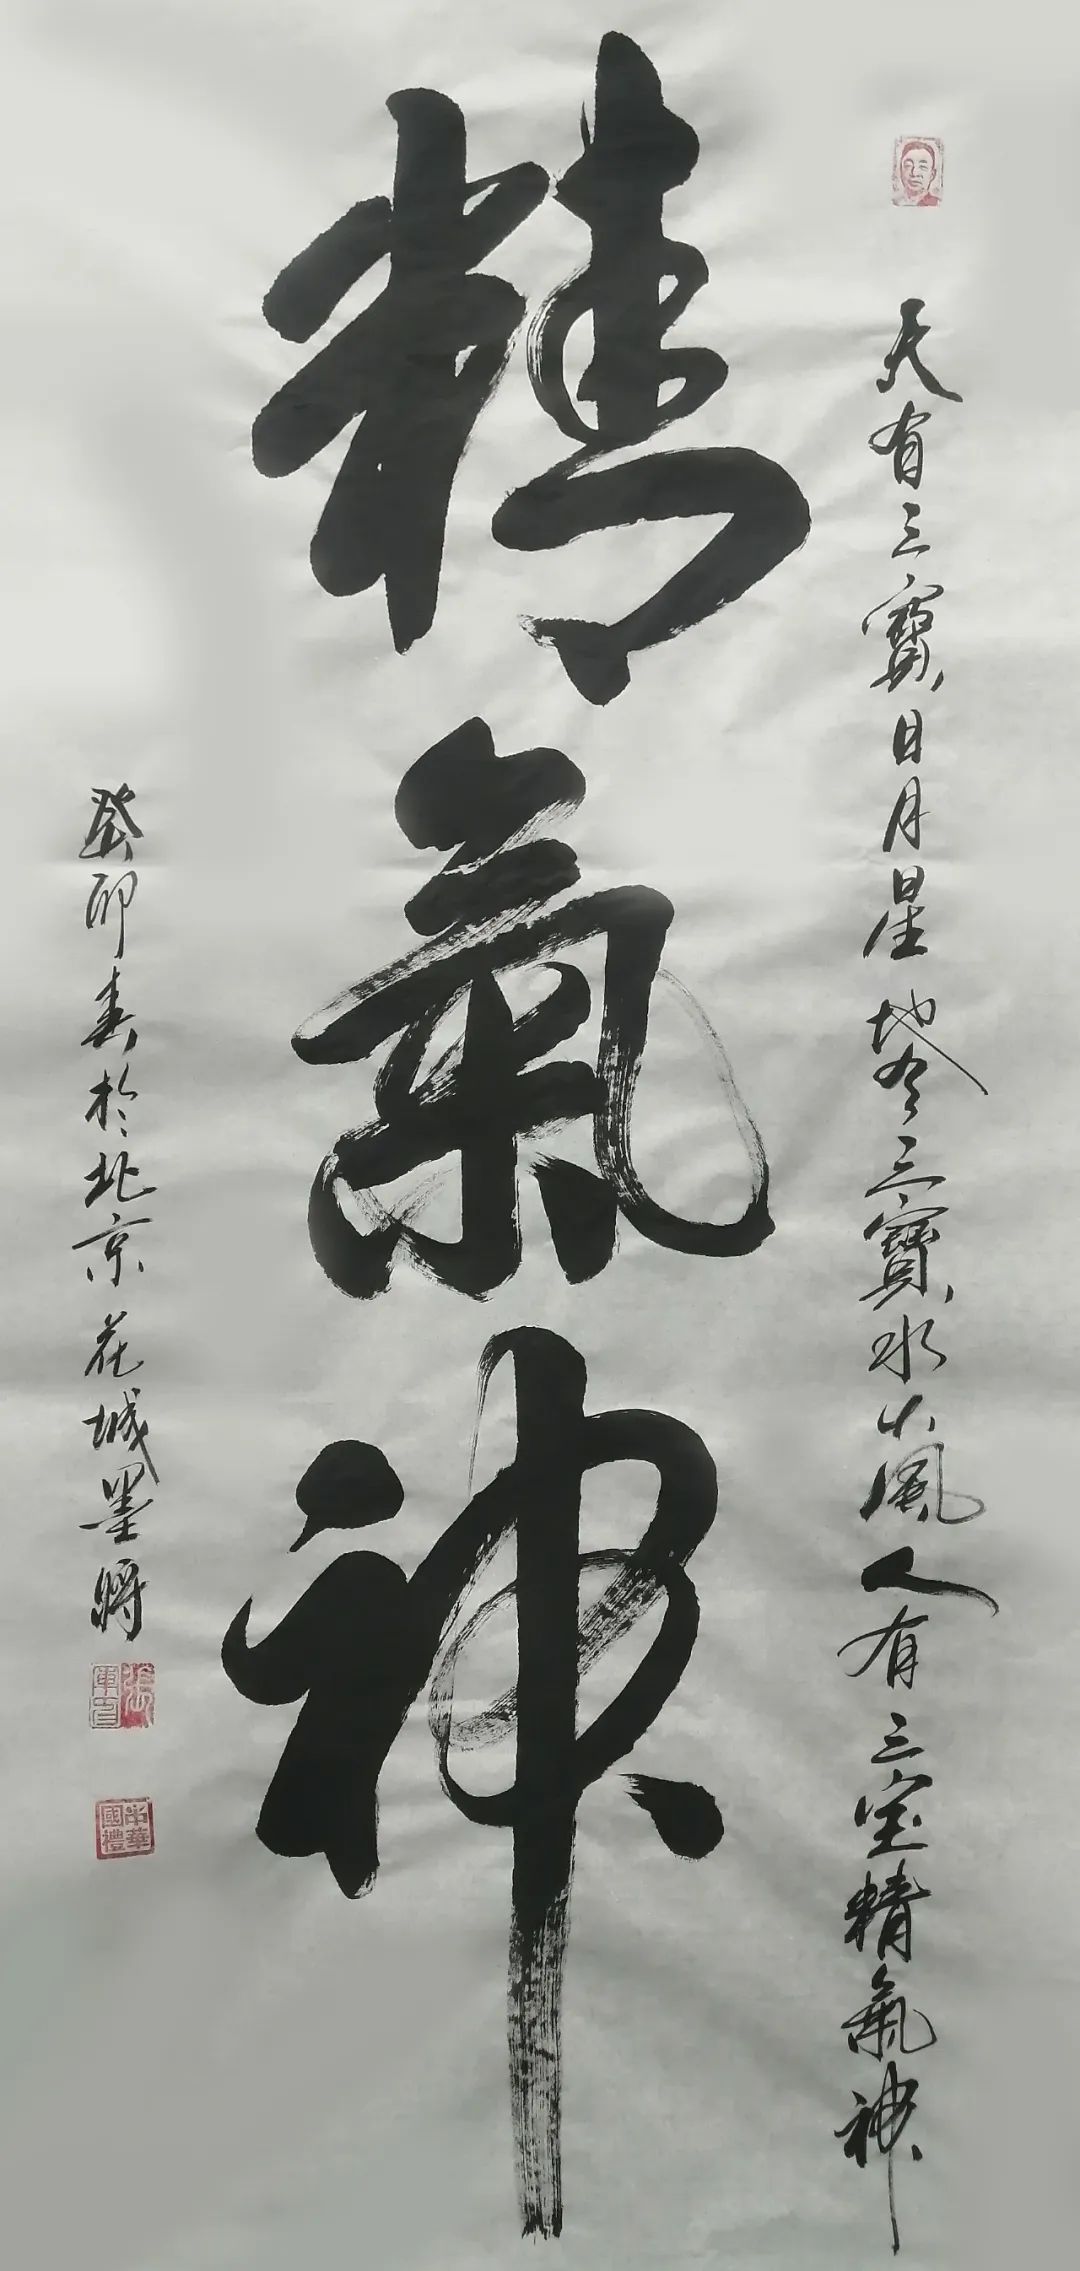 天有三寶日月星 地有三寶水火風 人有三宝精氣神
精氣神
癸卯春於北京花城墨將
中華國禮